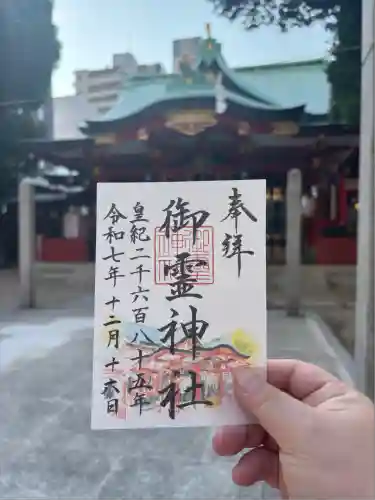 奉拝
御靈神社
皇紀二千六百八十五年
令和七年十二月十六日